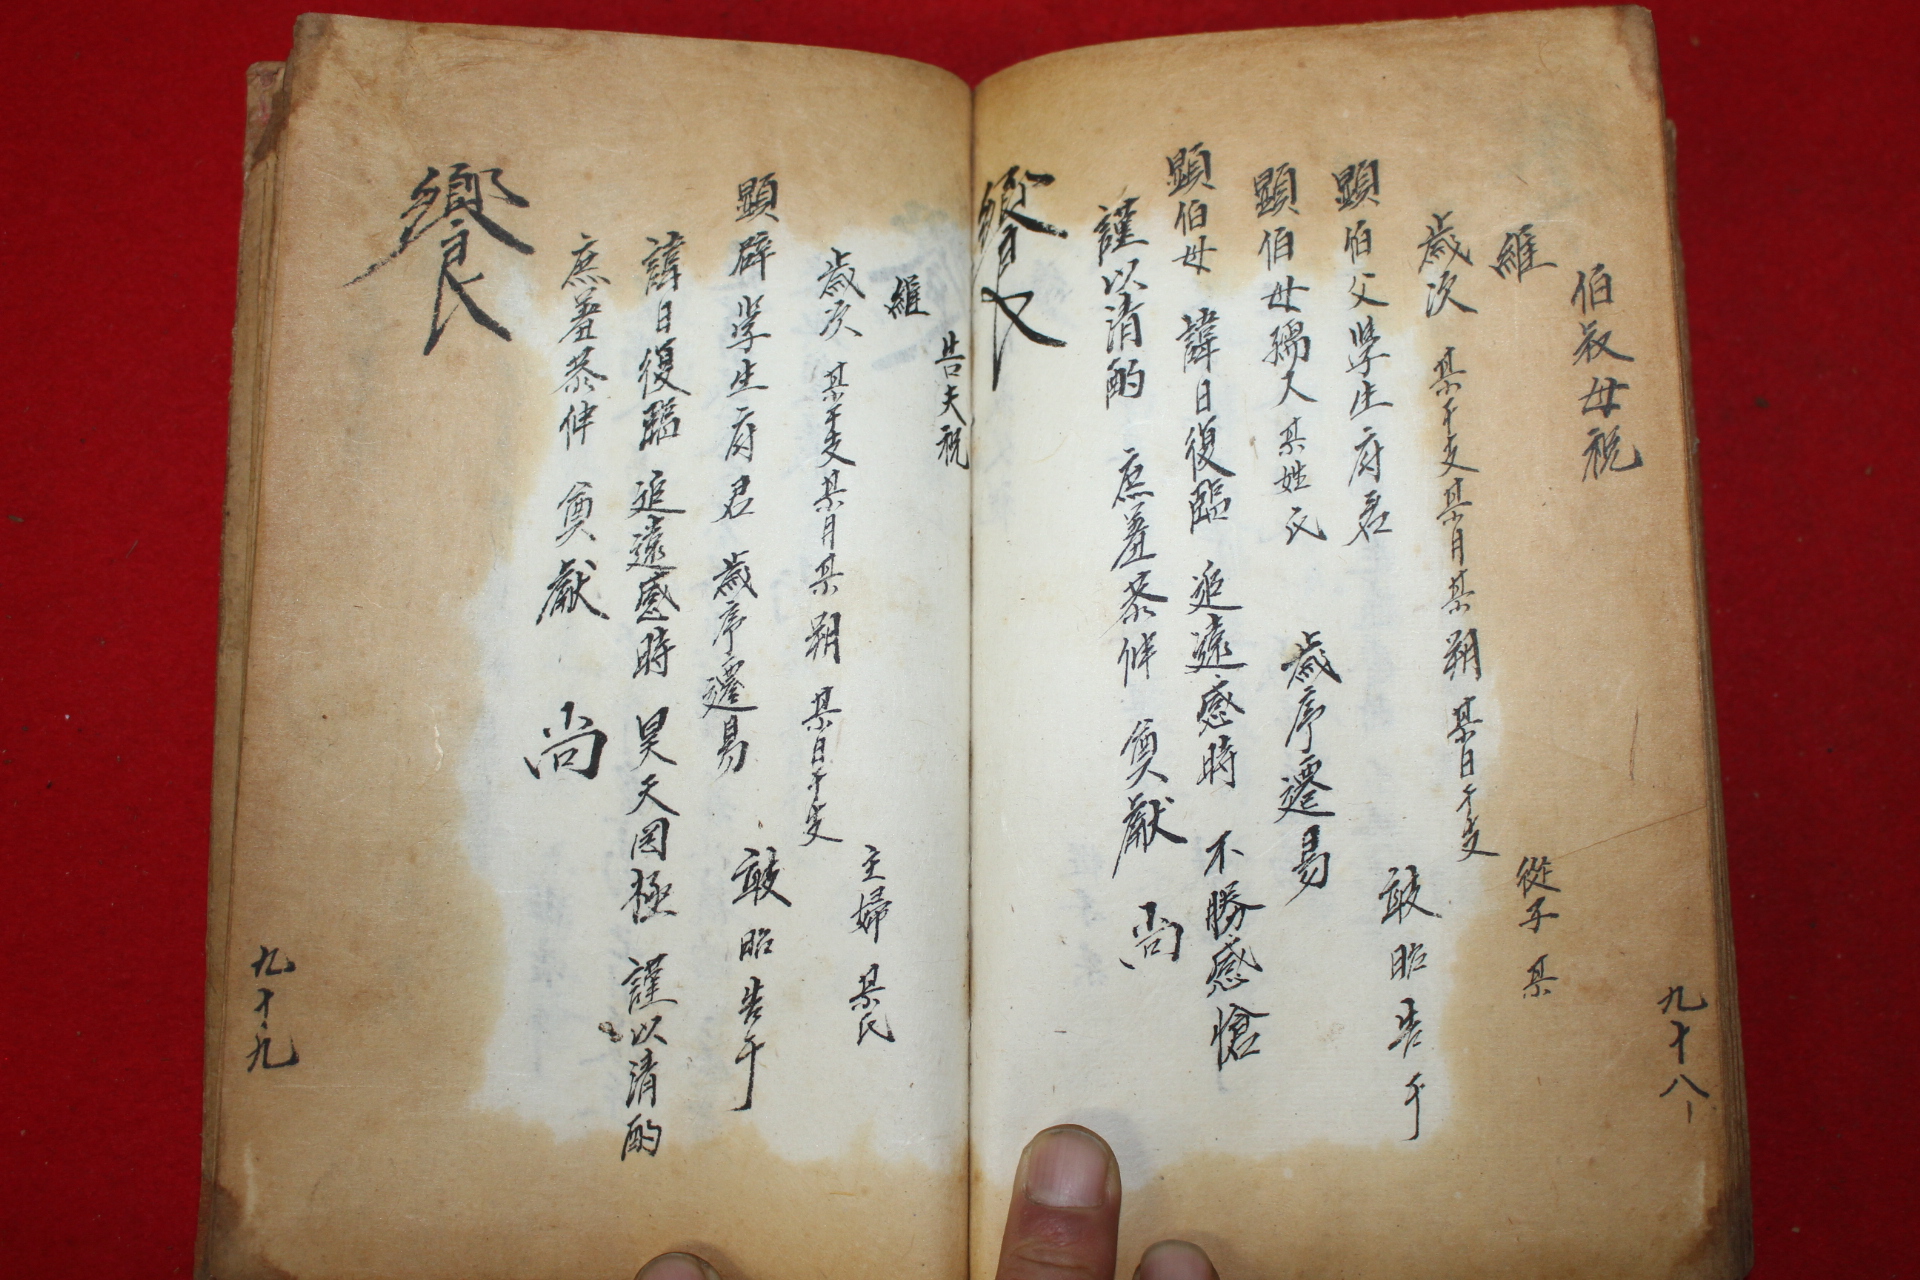 伯叔母祝
維
歲次 某干支某月某朔 某日干支 從子 某
敢昭告于
顯伯父學生府君
顯伯母孺人某姓氏 歲序遷易
顯伯母 諱日復臨 追遠感時 不勝感愴
謹以清酌 庶羞恭伸 奠獻 尚
饗
九十八
告夫祝
維
歲次 某干支某月某朔 某日干支 主婦 某氏
敢昭告于
顯辟學生府君 歲序遷易
諱日復臨 追遠感時 昊天罔極 謹以清酌
庶羞恭伸 奠獻 尚
饗
九十九